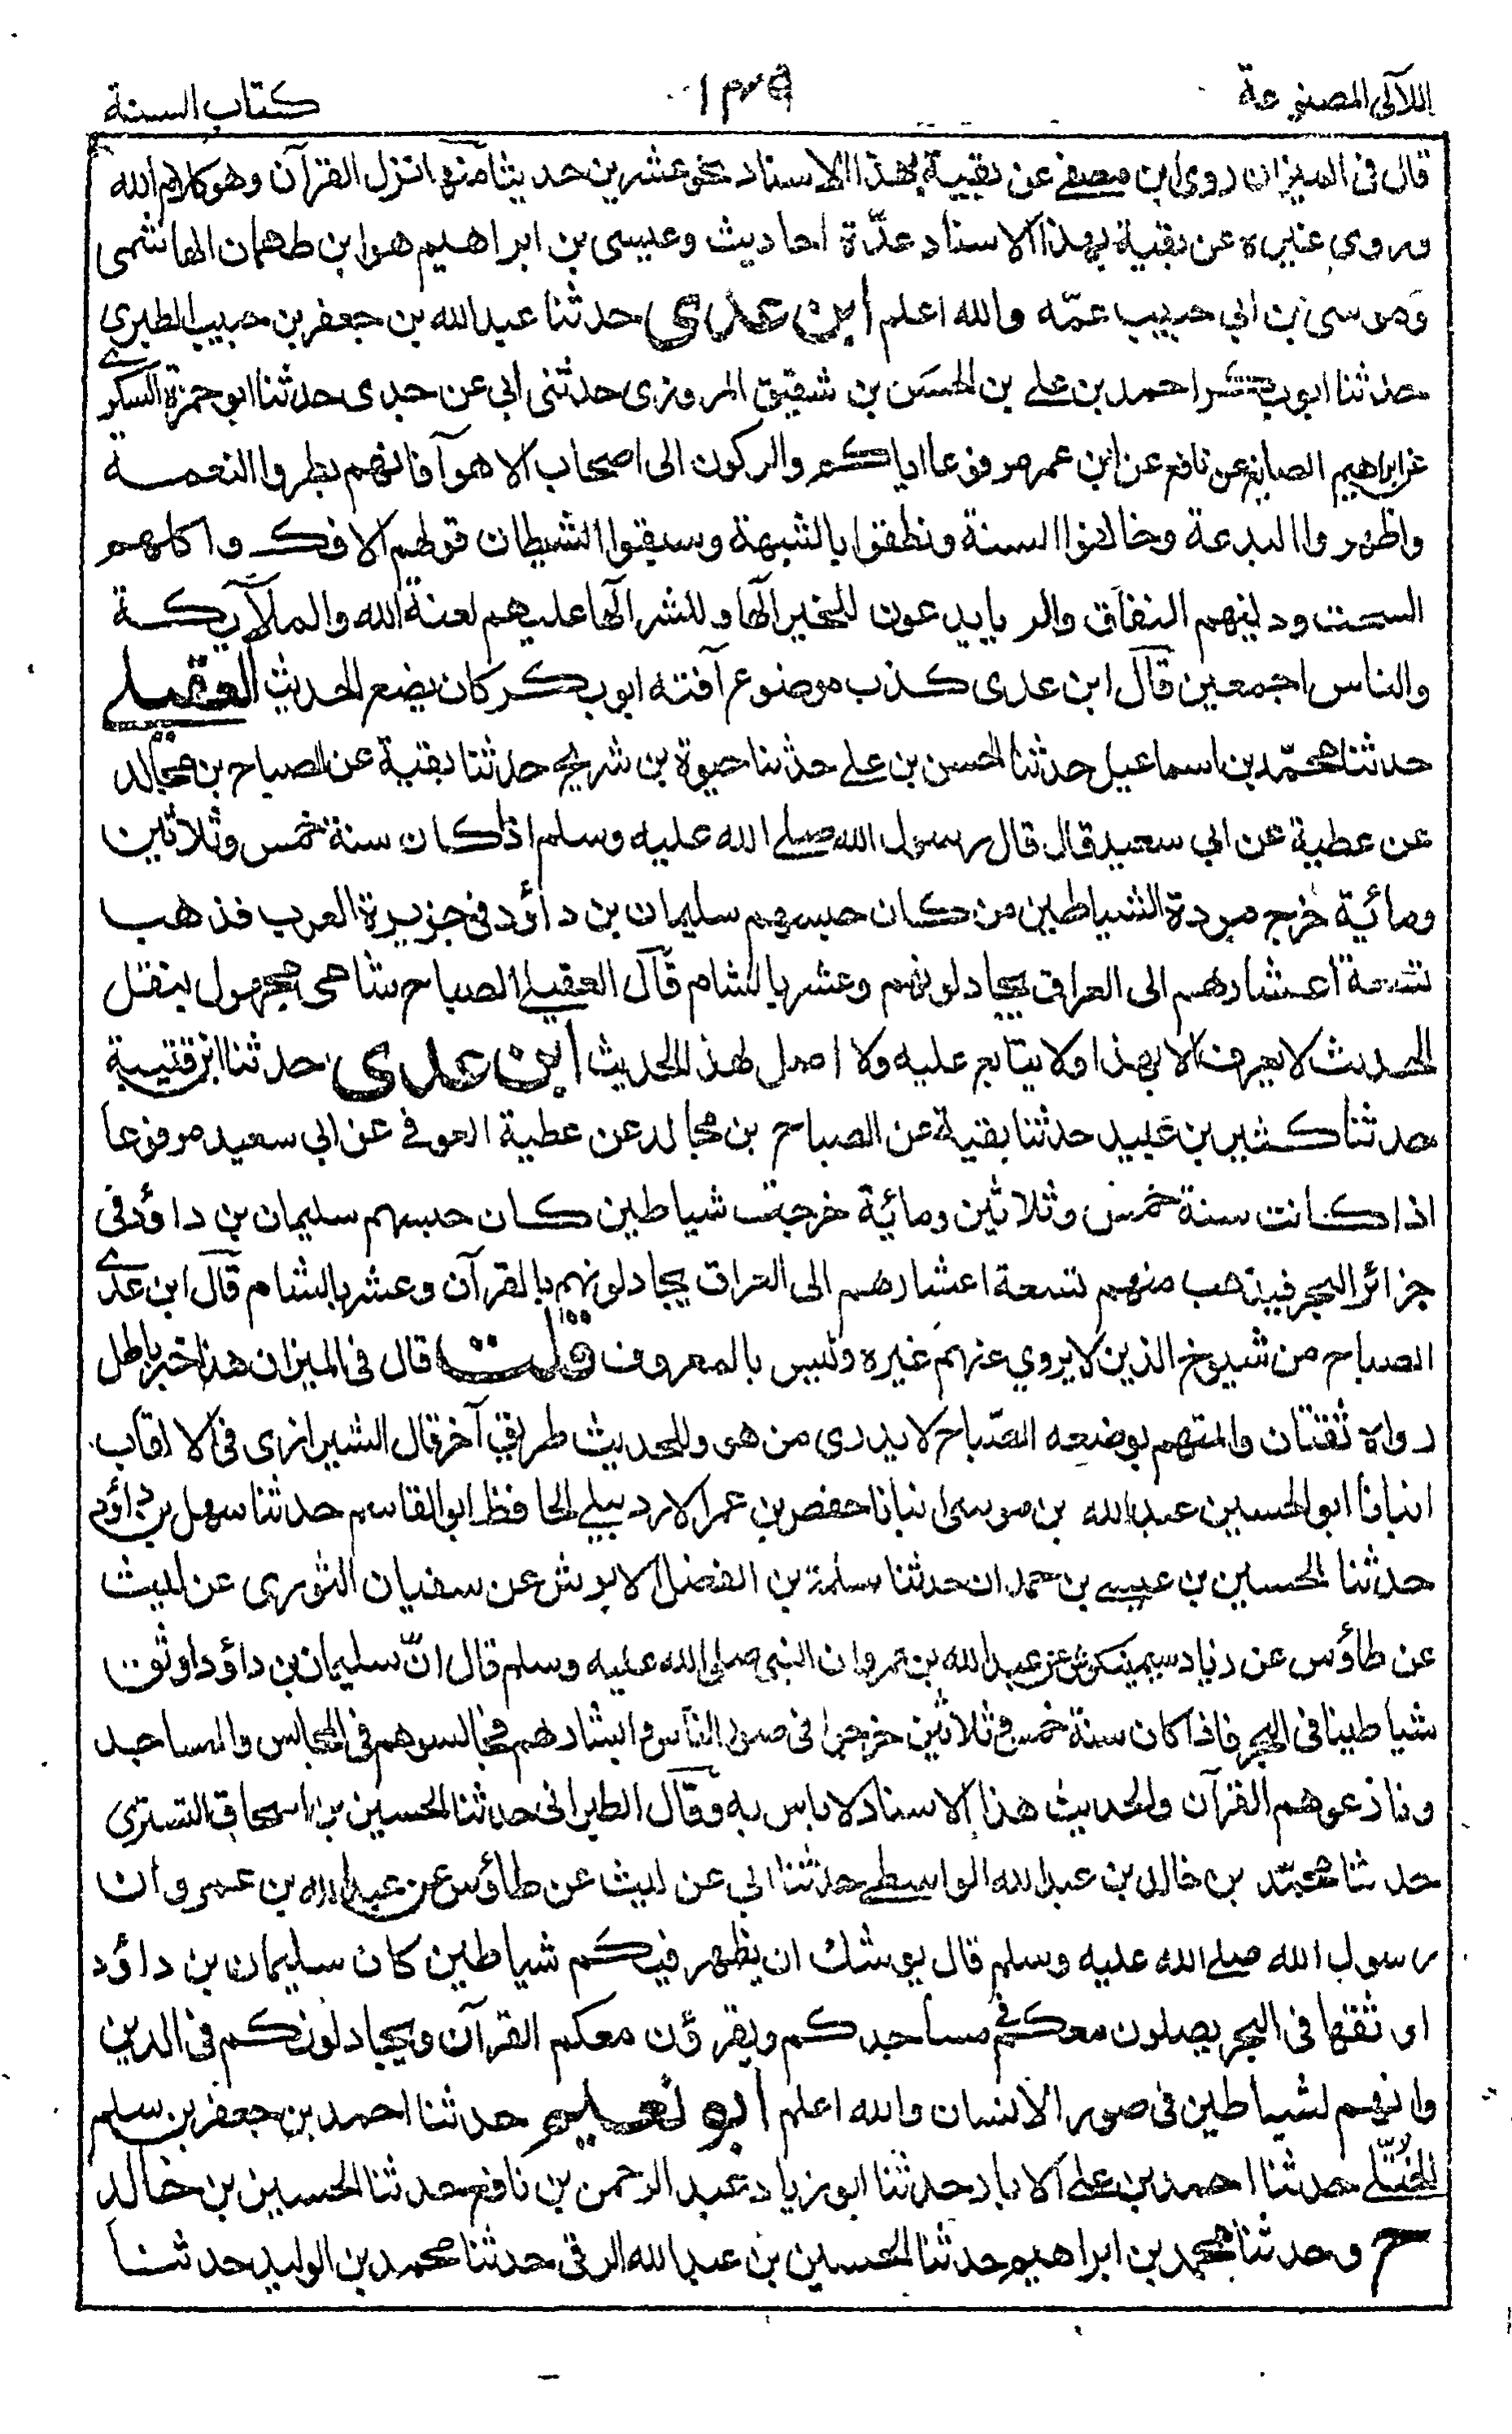 اللآلى المصنوعة
١٣٩
كتاب السنة
قال فى الميزان روى ابن مصفے عن بقية بهذا الاسناد نحو عشرين حديثا منها انزل القرآن وهو كلام الله
وروى غيره عن بقية بهذا الاسناد عدّة احاديث وعيسى بن ابراهيم هو ابن طهمان الهاشمى
وموسى بن ابي حبيب عمّه والله اعلم ابن عدى حدثنا عبد الله بن جعفر بن حبيب الطبرى
حدثنا ابو بكر احمد بن علے بن الحسن بن شقيق المروزى حدثنى ابي عن جدى حدثنا ابو حمزة السكرے
عن ابراهيم الصايغ عن نافع عن ابن عمر مرفوعا اياكم والركون الى اصحاب الاهوآ فانهم بطروا النعمة
واظهروا البدعة وخالفوا السنة ونطقوا بالشبهة وسبقوا الشيطان قولهم الافك واكلهم
السحت ودينهم النفاق والريا يدعون للخير الٓها وللشر الٓها عليهم لعنة الله والملآيكة
والناس اجمعين قال ابن عدى كذب موضوع آفته ابو بكر كان يضع الحديث العقيلے
حدثنا محمّد بن اسماعيل حدثنا الحسن بن علے حدثنا حيوة بن شريح حدثنا بقية عن الصباح بن مجالد
عن عطية عن ابي سعيد قال قال رسول الله صلے الله عليه وسلم اذا كان سنة خمس وثلاثين
ومائية خرج مردة الشياطين من كان حبسهم سليمان بن داؤد فى جزيرة العرب فذهب
تسعة اعشارهم الى العراق يجادلونهم وعشر بالشام قال العقيلے الصباح شامى مجهول بنقل
الحديث لا يعرف الا بهذا ولا يتابع عليه ولا اصل لهذ الحديث ابن عدى حدثنا ابن قتيبة
حدثنا كثير بن عبيد حدثنا بقية عن الصباح بن مجالد عن عطية العوفے عن ابي سعيد مرفوعا
اذا كانت سنة خمس وثلاثين ومائية خرجت شياطين كان حبسهم سليمان بن داؤد فى
جزائر البحر فيذهب منهم تسعة اعشارهم الى العراق يجادلونهم بالقرآن وعشر بالشام قال ابن عدے
الصباح من شيوخ الذين لا يروي عنهم غيره وليس بالمعروف قلت قال فى الميزان هذا خبر باطل
رواه ثقتان والمتهم بوضعه الصّباح لا يدرى من هو وللحديث طريق آخر قال الشيرازى فى الالقاب
انبانا ابو الحسين عبد الله بن موسى انبانا حفص بن عمر الاردبيلے الحافظ ابو القاسم حدثنا سهل بن داؤد
حدثنا الحسين بن عيسے بن حمدان حدثنا سلمة بن الفضل الابرش عن سفيان الثورى عن ليث
عن طاؤس عن زياد سيمينكوش عن عبد الله بن عمرو ان النبى صلى الله عليه وسلم قال انّ سليمان بن داؤد اوثق
شياطينا فى البحر فاذا كان سنة خمس وثلاثين خرجوا فى صور الناس وابشارهم فجالسوهم فى المجالس والمساجد
ونازعوهم القرآن والحديث هذا الاسناد لا باس به وقال الطبرانى حدثنا الحسين بن اسحاق التسترى
حدثنا محمّد بن خالد بن عبد الله الواسطے حدثنا ابي عن ليث عن طاؤس عن عبد الله بن عمرو ان
رسول الله صلے الله عليه وسلم قال يوشك ان يظهر فيكم شياطين كان سليمان بن داؤد
اوثقها فى البحر يصلون معكم فى مساجدكم ويقرؤن معكم القرآن ويجادلونكم فى الدين
وانهم لشياطين فى صور الانسان والله اعلم ابو نعيم حدثنا احمد بن جعفر بن سلم
الختّلے حدثنا احمد بن علے الابار حدثنا ابو زياد عبد الرحمن بن نافع حدثنا الحسين بن خالد
ح وحدثنا محمد بن ابراهيم حدثنا الحسين بن عبد الله الرقى حدثنا محمد بن الوليد حدثنا